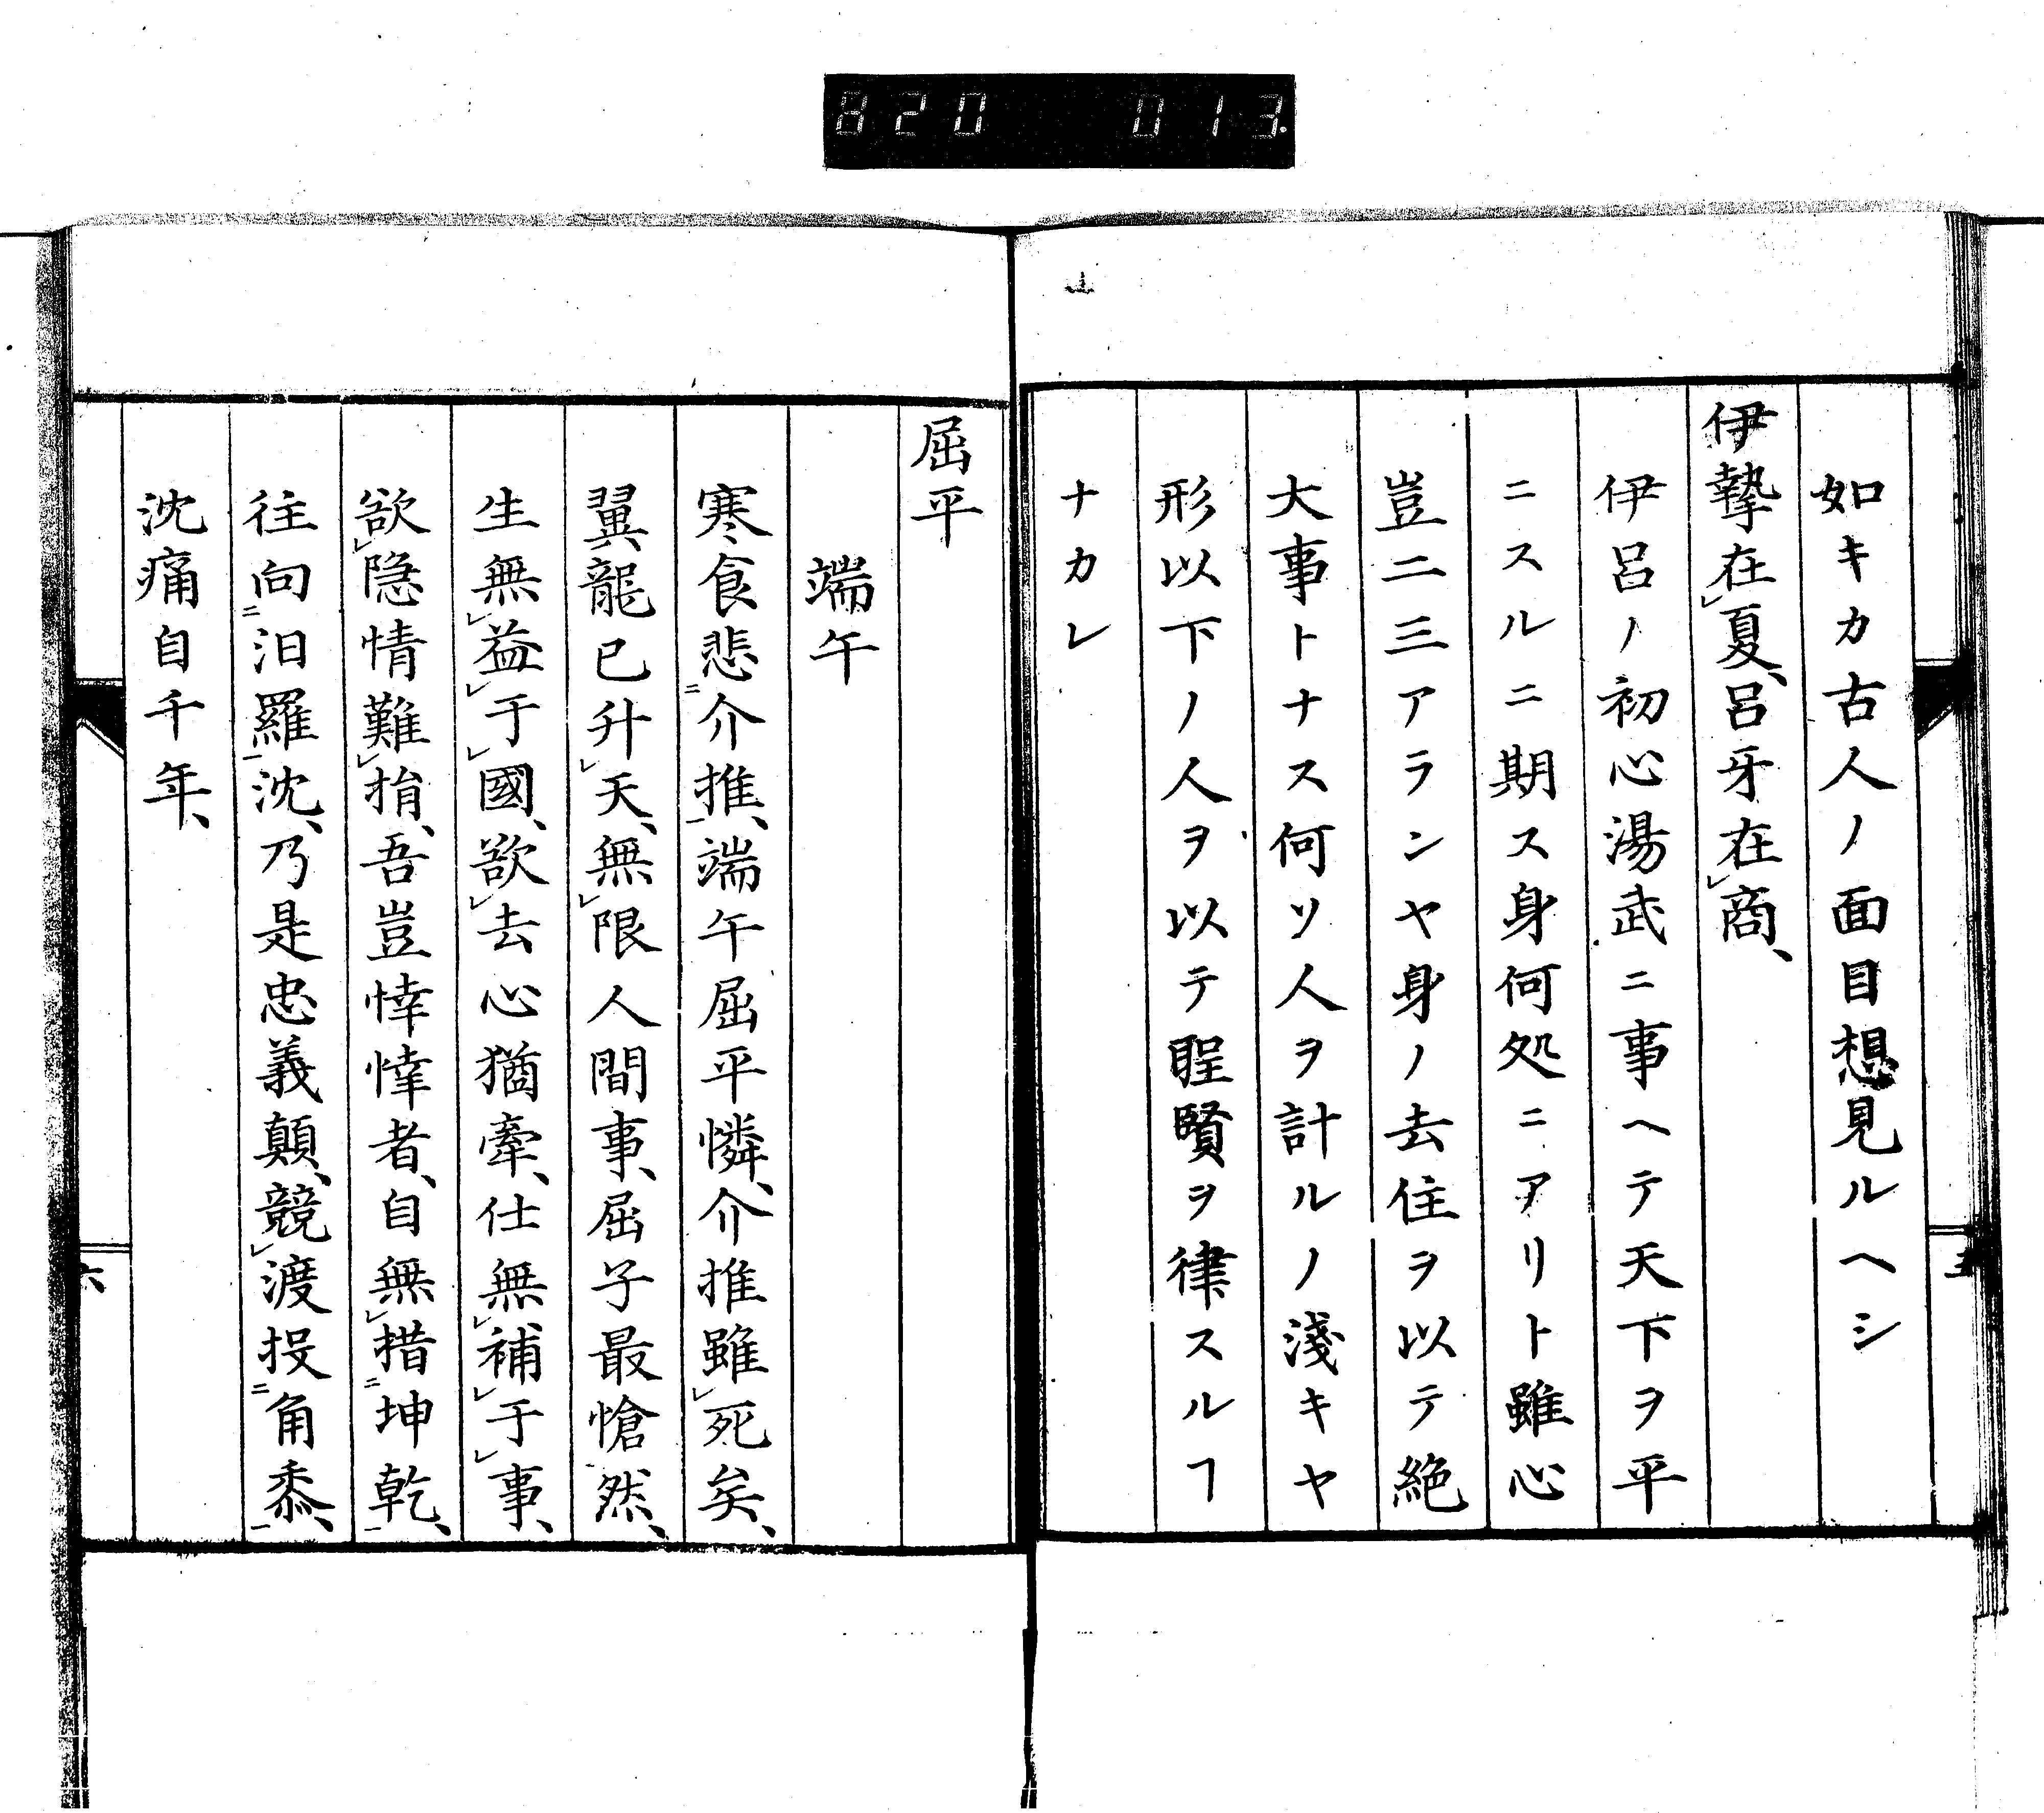 820 013
如キカ古人ノ面目想見ルヘシ
伊摯在㆑夏、呂牙在㆑商、
伊呂ノ初心湯武ニ事ヘテ天下ヲ平
ニスルニ期ス身何処ニアリト雖心
豈二三アランヤ身ノ去住ヲ以テ絶
大事トナス何ソ人ヲ計ルノ淺キヤ
形以下ノ人ヲ以テ聖賢ヲ律スルヿ
ナカレ
五
屈平
端午
寒食悲㆓介推㆒、端午屈平憐、介推雖㆑死矣、
翼龍已升㆑天、無㆑限人間事、屈子最愴然、
生無㆑益㆑于㆑國、欲㆑去心猶牽、仕無㆑補㆑于㆑事、
欲㆑隠情難㆑捐、吾豈悻悻者、自無㆑措㆓坤乾㆒、
往向㆓汨羅㆒沈、乃是忠義顛、競㆑渡投㆓角黍㆒、
沈痛自千年、
六